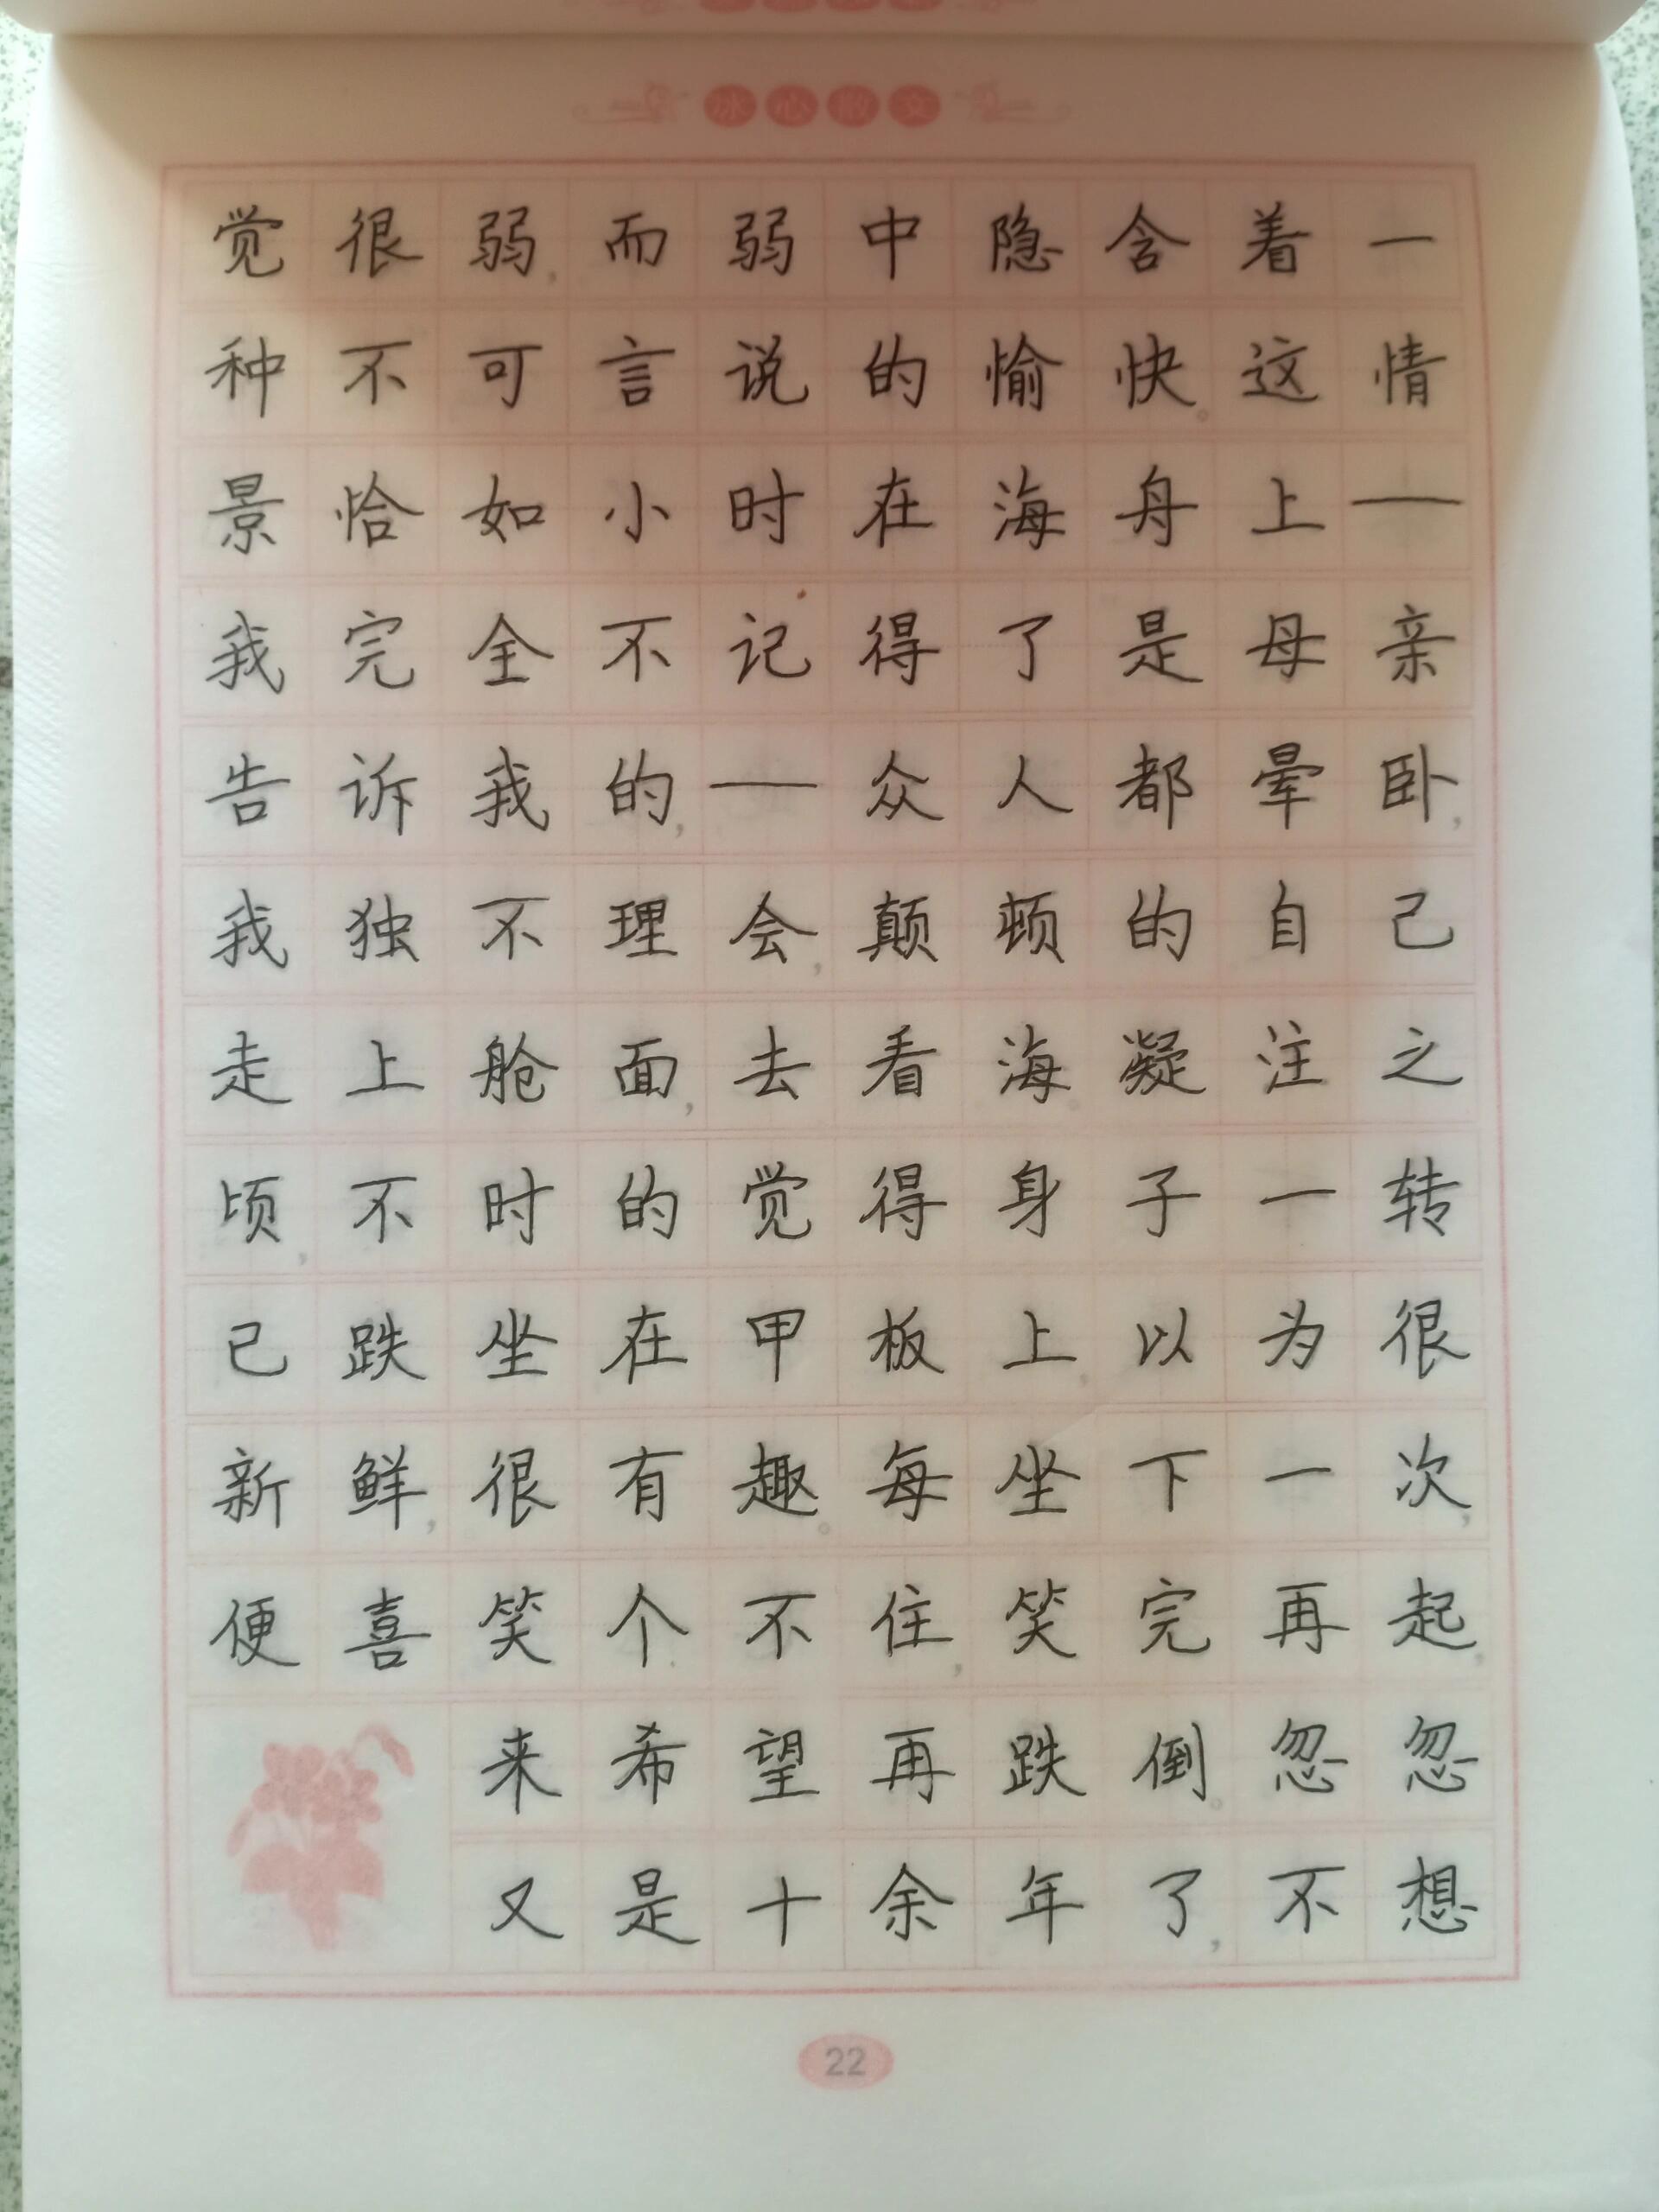 冰心散文
觉很弱,而弱中隐含着一
种不可言说的愉快。这情
景恰如小时在海舟上—
我完全不记得了是母亲
告诉我的,—众人都晕卧,
我独不理会,颠顿的自己
走上舱面,去看海。凝注之
顷,不时的觉得身子一转
已跌坐在甲板上,以为很
新鲜,很有趣。每坐下一次,
便喜笑个不住,笑完再起,
来希望再跌倒。忽忽
又是十余年了,不想
22